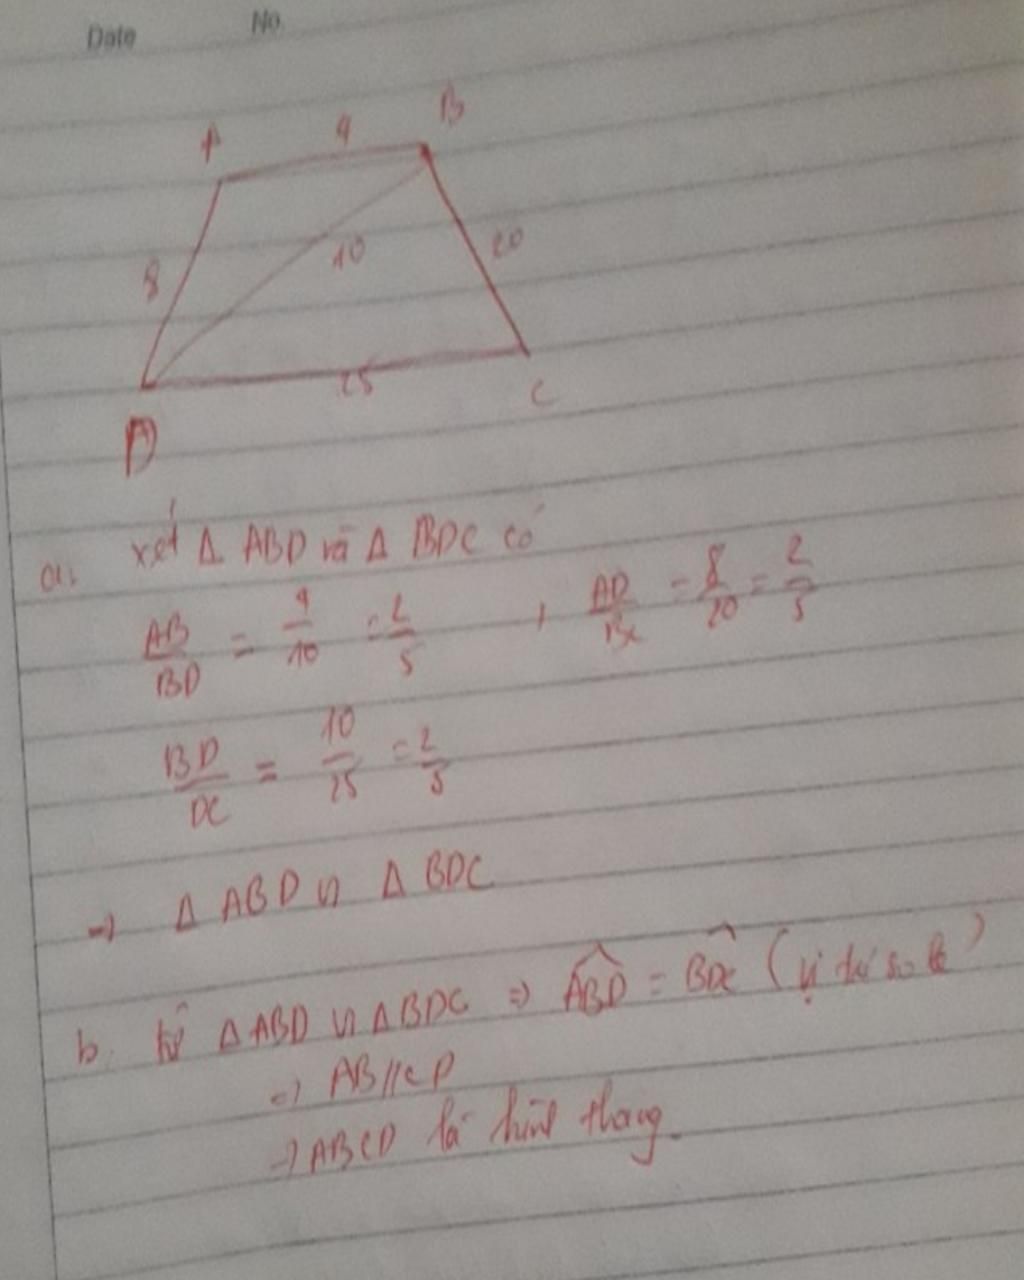 Date No.
A 4 B
8 10 20
25 C
D
a. xét Δ ABD và Δ BDC có
AB/BD = 4/10 = 2/5 , AD/BC = 8/20 = 2/5
BD/DC = 10/25 = 2/5
=> Δ ABD ∽ Δ BDC
b. từ Δ ABD ∽ Δ BDC => ABD = BDC (vị trí so le)
=> AB//CD
=> ABCD là hình thang